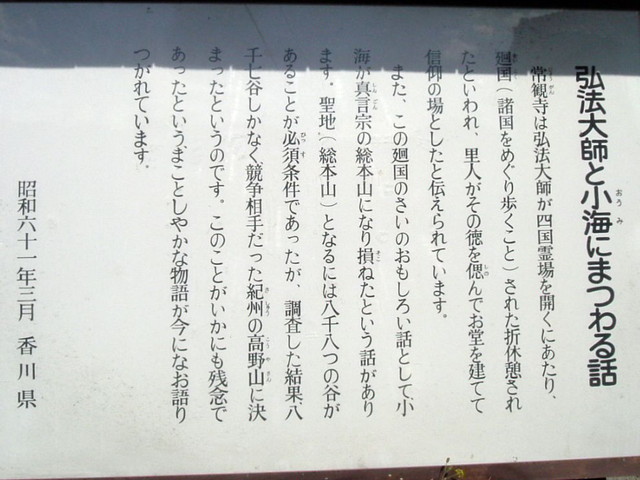 弘法大師と小海にまつわる話
おうみ
常観寺は弘法大師が四国霊場を開くにあたり、
廻国(諸国をめぐり歩くこと)された折休憩され
たといわれ、里人がその徳を偲んでお堂を建てて
信仰の場としたと伝えられています。
また、この廻国のさいのおもしろい話として小
海が真言宗の総本山になり損ねたという話があり
ます。聖地(総本山)となるには八千八つの谷が
あることが必須条件であったが、調査した結果八
千七谷しかなく競争相手だった紀州の高野山に決
まったというのです。このことがいかにも残念で
あったというまことしやかな物語が今になお語り
つがれています。
昭和六十一年三月 香川県